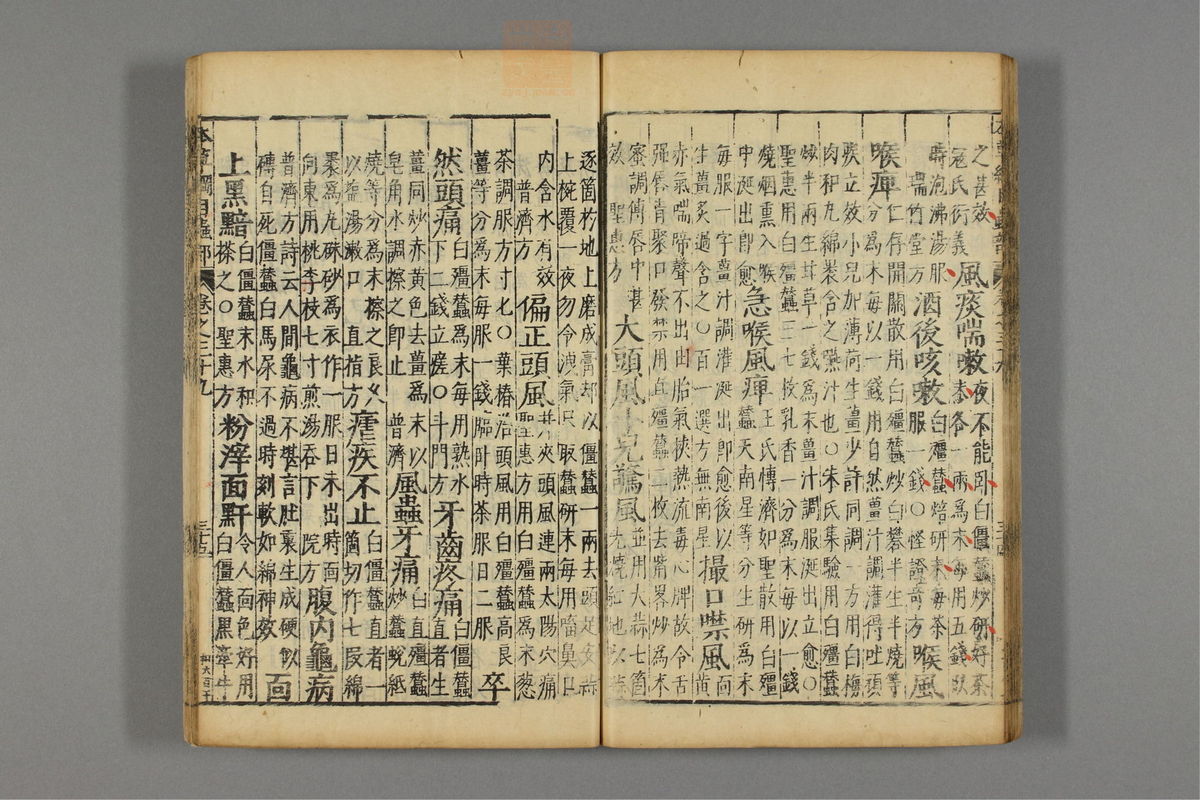 之甚效
寇氏衍義 風痰喘嗽 夜不能卧白僵蠶炒研好茶
末各一兩爲末每用五錢卧
時泡沸湯服 酒後咳嗽 白殭蠶焙研末每茶
服一錢○怪證奇方 喉風
喉痺 仁存開關散用白殭蠶炒白礬半生半燒等
分爲末每以一錢用自然薑汁調灌得吐頑
痰立效小兒加薄荷生薑少許同調一方用白梅
肉和丸綿裹含之嚥汁也○朱氏集驗用白殭蠶
炒半兩生甘草一錢爲末薑汁調服涎出立愈○
聖惠用白殭蠶三七枚乳香一分爲末每以一錢
燒烟熏入喉 急喉風痺 王氏博濟如聖散用白殭
中涎出即愈 蠶天南星等分生研爲末
每服一字薑汁調灌涎出即愈後以
生薑炙過含之○百一選方無南星 撮口噤風 面黃
赤氣喘啼聲不出由胎氣挾熱流毒心脾故令舌
强唇青聚口發禁用直殭蠶二枚去觜畧炒爲末
蜜調傅唇中甚
效 聖惠方 大頭風小兒驚風 並用大蒜七箇
先燒紅地以蒜
逐箇於地上磨成膏却以僵蠶一兩去頭足安蒜
上椀覆一夜勿令洩氣只取蠶研末每用㗜鼻口
內含水有效 普濟方 偏正頭風 并夾頭風連兩太陽穴痛
聖惠方用白殭蠶爲末葱
茶調服方寸匕○葉椿治頭風用白殭蠶高良
薑等分爲末每服一錢臨卧時茶服日二服 卒
然頭痛 白殭蠶爲末每用熟水
下二錢立瘥○斗門方 牙齒疼痛 白僵蠶
直者生
薑同炒赤黃色去薑爲末以
皂角水調擦之即止 普濟 風蟲牙痛 白直殭蠶
炒蠶蛻紙
燒等分爲末擦之良久
以鹽湯漱口 直指方 瘧疾不止 白僵蠶直者一
箇切作七叚綿
裹爲丸硃砂爲衣作一服日未出時面
向東用桃李枝七寸煎湯吞下 院方 腹內龜病
普濟方詩云人間龜病不堪言肚裏生成硬似
磚自死僵蠶白馬尿不過時刻軟如綿神效 面
上黑黯 白僵蠶末水和
搽之○聖惠方 粉滓面䵟 令人面色好用
白僵蠶黑牽牛
本草綱目蟲部 卷之三十九 三十五